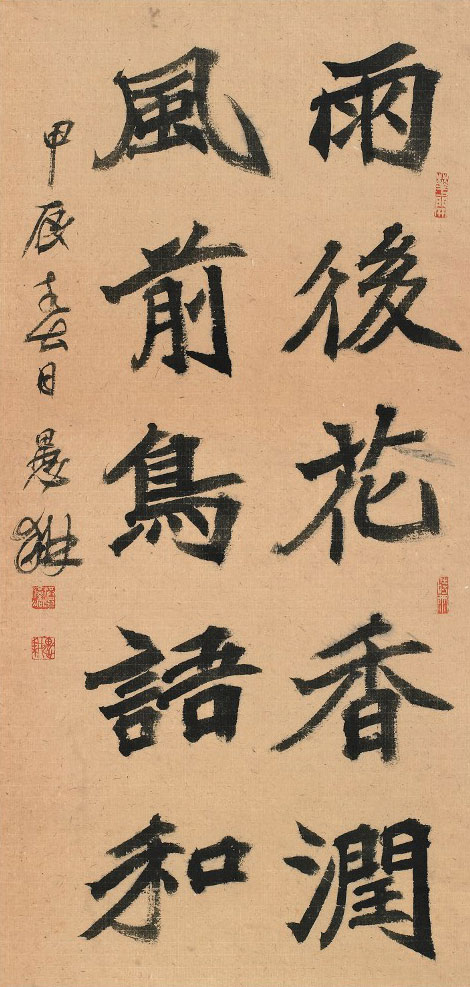 雨後花香潤
風前鳥語和
甲辰春日愚